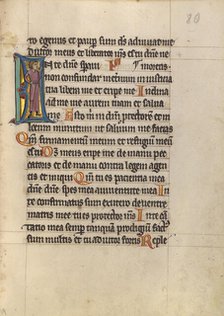 80
ro egenus et paup sum ds adiuua me
diutor meus et liberator meus es tu dne
N te dne spaui ne moreris
non confundar in eternum in iusticia
tua libera me et eripe me Inclina
ad me aurem tuam et salua
me Esto m in ds protectore et in
locum munitum ut saluum me facias
Qm firmamentum meum et refugium meum
es tu Ds meus eripe me de manu pec
catoris et de manu contra legem agen
tis et iniqui Qm tu es paciencia mea
dne dne spes mea a iuuentute mea In
te confirmatus sum ex utero de uentre
matris mee tu es protector ms In te can
tatio mea semp tanquam prodigiu fact
sum multis et tu adiutor fortis Reple